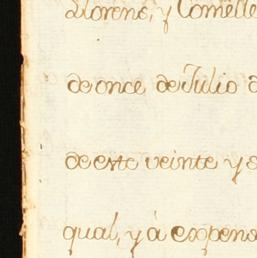 Llorens, y Comelle
de once de Julio d
de este veinte y s
qual, y à expens